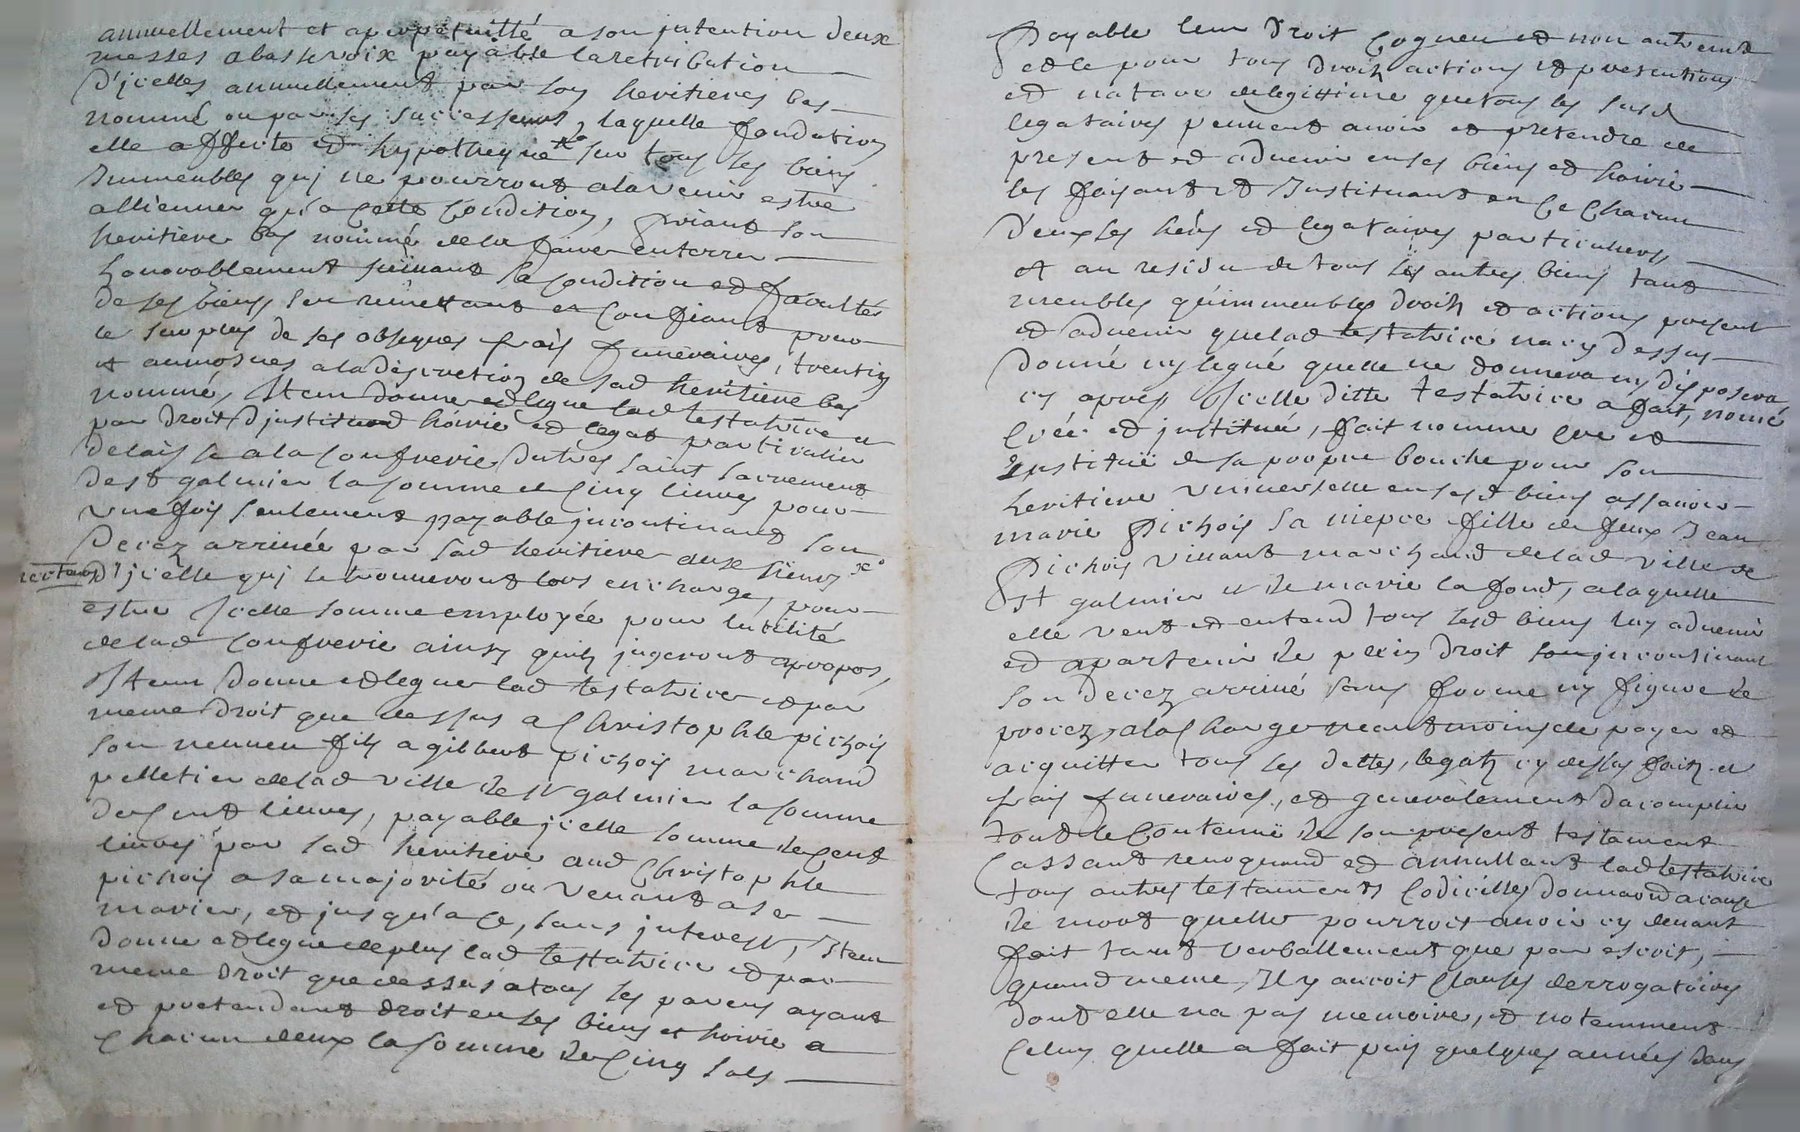 annuellement et aperpetuitté a son jntention deux
messes a basse voix payable la retribution
d'jcelles annuellement par son heritieres bas
nommé ou par ses successeurs, laquelle fondation
elle affecte et hypotheque sur tous les biens
Immeubles quj ne pourront a lavenir estre
alliener qu'a cette condition, priant son
heritiere bas nommé de la faire enterrer
honorablement suiuant sa condition et facultés
de ses biens sen remettant et confiant pour
le surplus de ses obseques frais funeraires, trentin
et aumosnes a la discretion de sad heritiere bas
nommé, Item donne et legue lad testatrice et
par droit d'justitution hoirie et legat particulier
delaisse a la confrerie du tres saint sacrement
de st galmier la somme de cinq liures pour
vne fois seulement payable jncontinant son
decez arriuée par sad heritiere aux sieurs
recteurs d'jcelle quj se trouueront lors en charge, pour
estre Jcelle somme employée pour lutilité
de lad confrerie ainsy quilz jugeront apropos,
Item donne et legue lad testatrice et par
meme droit que dessus a Christophle pichois
son neuueu filz a gilbert pichois marchand
pelletier de lad ville de st galmier la somme
de cent liures, payable jcelle somme de cent
liures par sad heritiere aud Christophle
pichois a sa majorité ou venant a se
marier, et jusqu'a ce, sans jnterest, Item
donne et legue de plus lad testatrice et par
meme droit que dessus a tous les parens ayant
et pretendant droit en ses biens et hoirie a
chacun deux la somme de cinq sols
Payable leur droit cogneu et non autrement
et ce pour tous droitz actions et pretentions
et nature de legittime que tous les susd
legataires peuuent auoir et pretendre de
present et aduenir en ses biens et hoirie
les faisant et Instituant en ce chacun
d'eux ses hers et legataires particuliers
et au residu de tous ses autres biens tant
meubles qu'immeubles droitz et actions present
et aduenir que lad testatrice na cy dessus
donné ny legué quelle ne donnera ny disposera
cy apres Jcelle ditte testatrice a fait, nomé
creé et jnstitué, fait nomme cre et
Institué de sa propre bouche pour son
heritiere vniuerselle en sesd biens assauoir
marie Pichois sa niepce fille de feux Jean
Pichois viuant marchand de lad ville de
St galmier et de marie la fond, a laquelle
elle veut et entend tous sesd biens luy aduenir
et apartenir de plein droit jncontinant
son decez arriué sans forme ny figure de
procez, a la charge neantmoins de payer et
acquitter tous ses dettes, legatz cy dessus faitz et
frais funeraires, et generalement dacomplir
tout le contenue de son present testament
Cassant reuoquand et annullant lad testatrice
tous autres testaments codicilles donnaōn a cause
de mort quelle pourroit auoir cy deuant
fait tant verballement que par escrit,
quand meme Il y auroit clauses derrogatoires
dont elle na pas memoire, et notemment
celuy quelle a fait puis quelques années dans